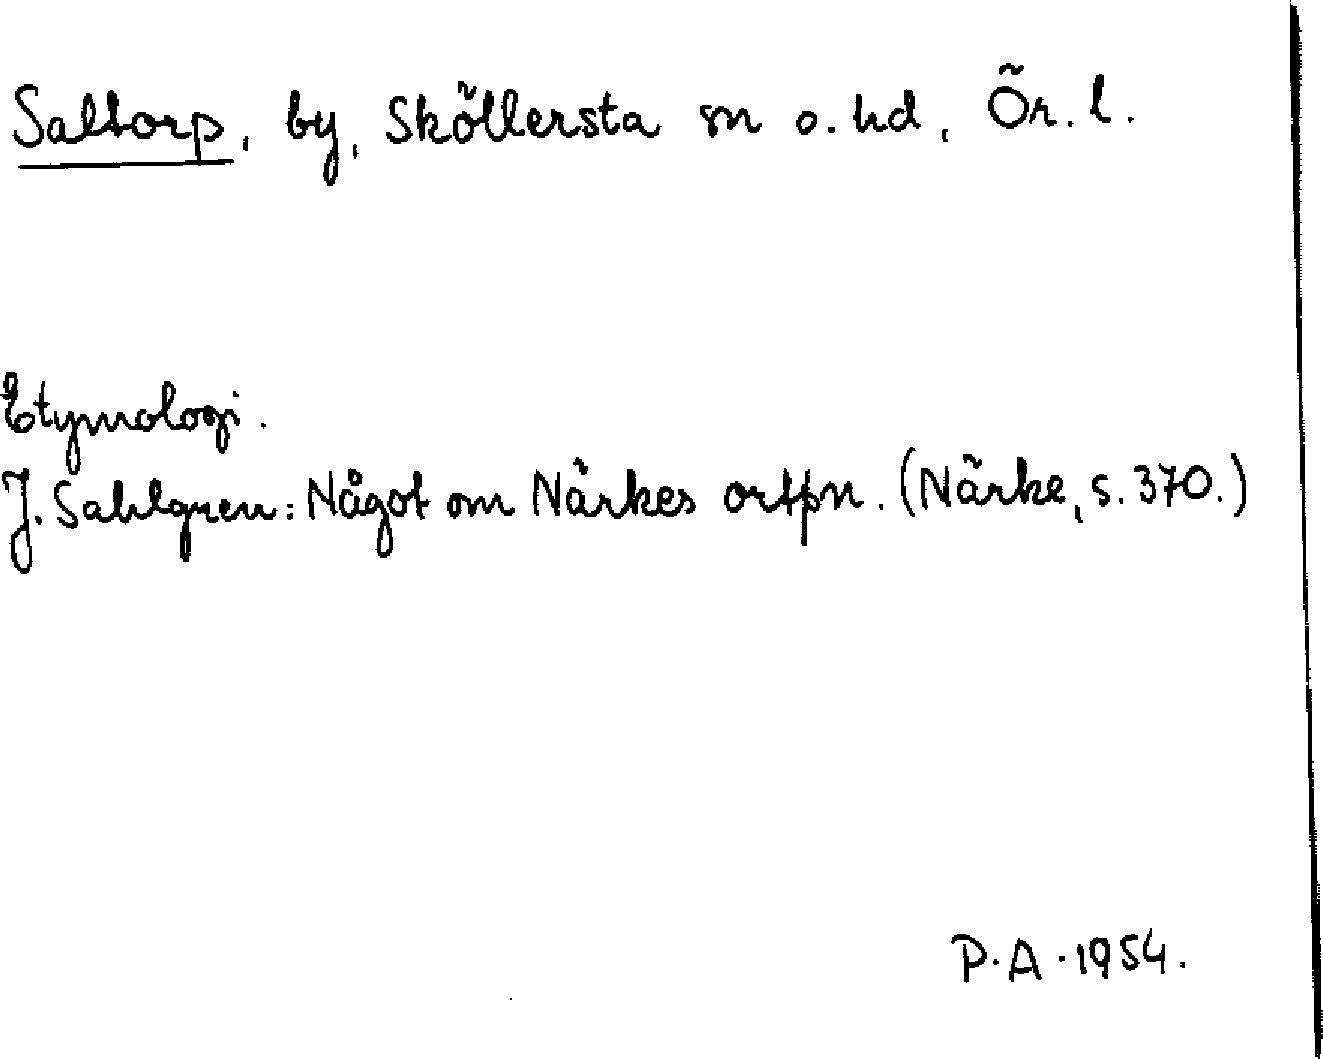 Saltorp, by, Sköllersta sn o. hd, Ör. l.
Etymologi.
J. Sahlgren: Något om Närkes ortpn. (Närke, s. 370.)
P.A. 1954.